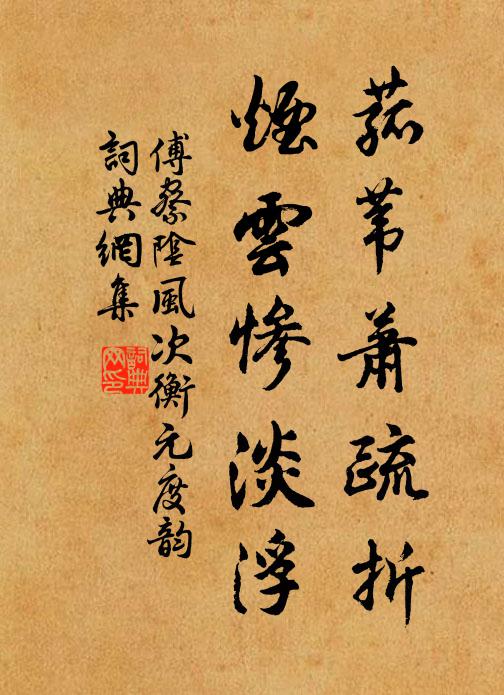 菰苇蕭疏折
煙雲慘淡浮
傅察陰風次衡元度韵
詞典網集
詞典